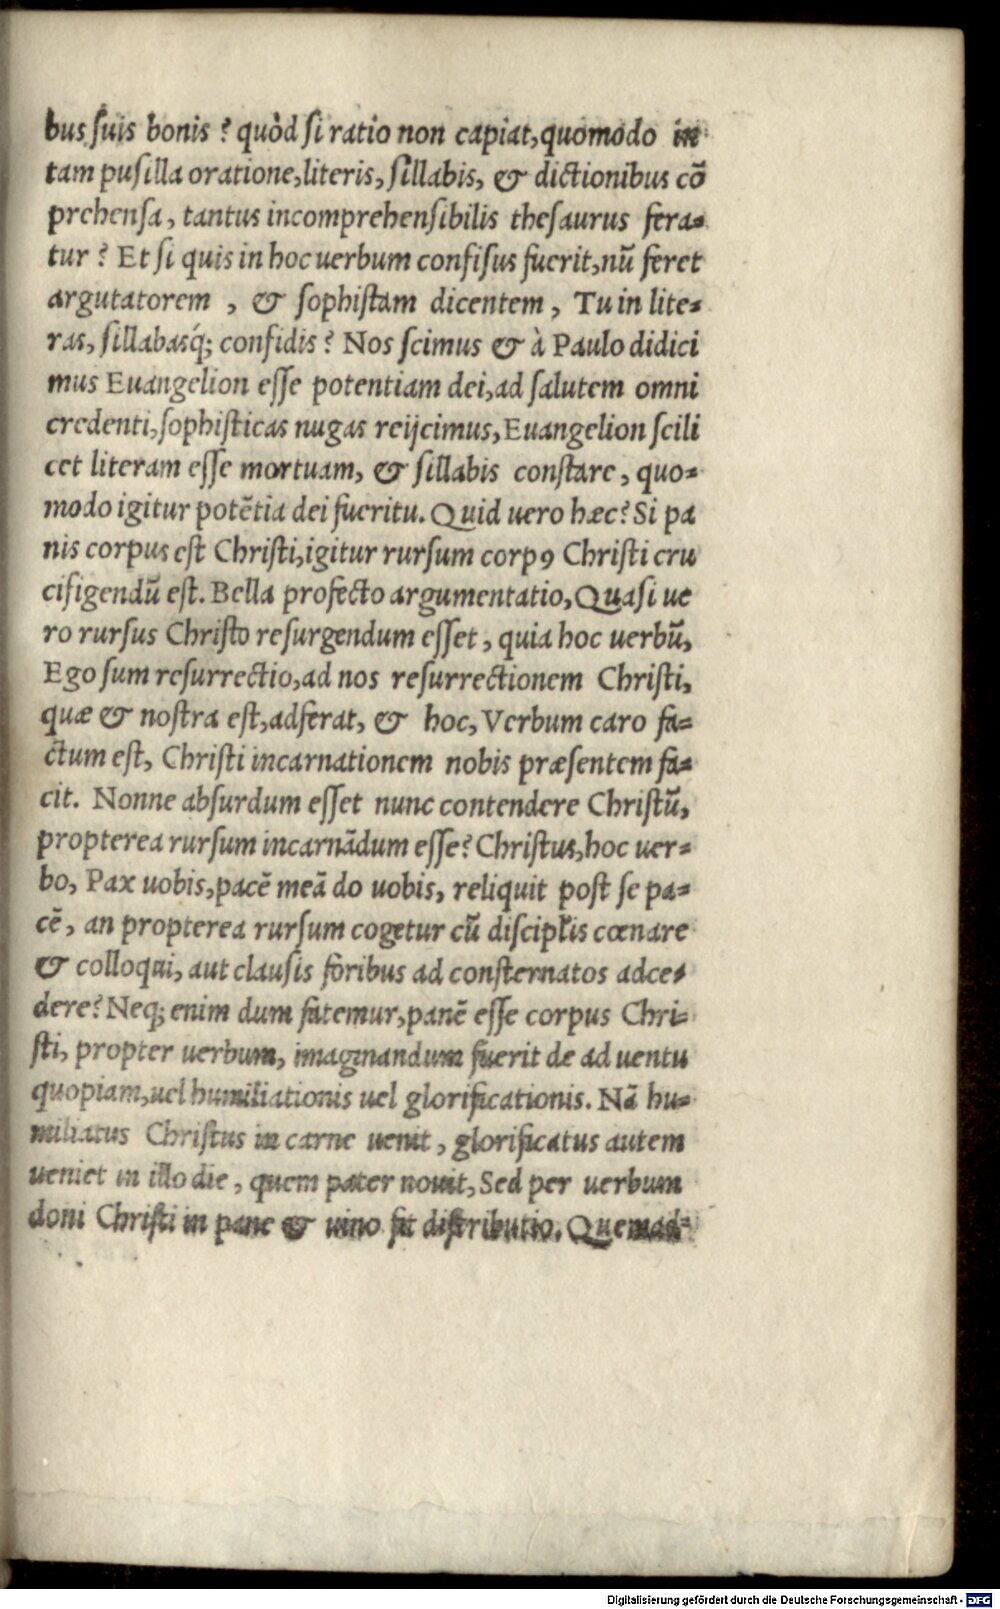 bus suis bonis ? quòd si ratio non capiat, quomodo in
tam pusilla oratione, literis, sillabis, & dictionibus cō
prehensa, tantus incomprehensibilis thesaurus fera-
tur ? Et si quis in hoc uerbum confisus fuerit, nū feret
argutatorem , & sophistam dicentem , Tu in lite-
ras, sillabasq́; confidis ? Nos scimus & à Paulo didici
mus Euangelion esse potentiam dei, ad salutem omni
credenti, sophisticas nugas reijcimus, Euangelion scili
cet literam esse mortuam, & sillabis constare , quo-
modo igitur potētia dei fueritu. Quid uero hæc? Si pa
nis corpus est Christi, igitur rursum corpꝰ Christi cru
cifigendū est. Bella profecto argumentatio, Quasi ue
ro rursus Christo resurgendum esset , quia hoc uerbū,
Ego sum resurrectio, ad nos resurrectionem Christi,
quæ & nostra est, adferat, & hoc, Verbum caro fa-
ctum est, Christi incarnationem nobis præsentem fa-
cit. Nonne absurdum esset nunc contendere Christū,
propterea rursum incarnādum esse? Christus, hoc uer-
bo, Pax uobis, pacē meā do uobis, reliquit post se pa-
cē , an propterea rursum cogetur cū discipłis cœnare
& colloqui, aut clausis foribus ad consternatos adce-
dere? Neq; enim dum fatemur, panē esse corpus Chri-
sti, propter uerbum, imaginandum fuerit de ad uentu
quopiam, uel humiliationis uel glorificationis. Nā hu-
miliatus Christus in carne uenit , glorificatus autem
ueniet in illo die , quem pater nouit, Sed per uerbum
doni Christi in pane & uino fit distributio. Quemad-
Digitalisierung gefördert durch die Deutsche Forschungsgemeinschaft - DFG